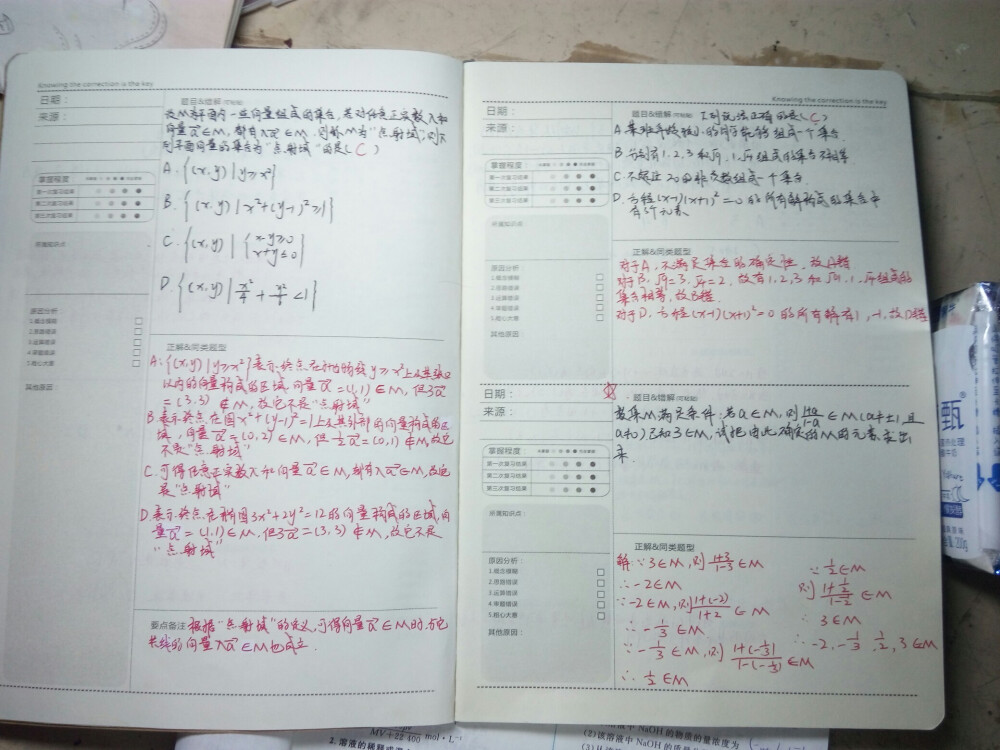 Knowing the correction is the key
日期：
来源：
题目&错解(可粘贴)
设M为平面内一些向量组成的集合,若对任意正实数λ和
向量a∈M,都有λa∈M,则称M为"点射域",则下
列平面向量的集合为"点射域"的是( C )
A.{(x,y)|y≥x²}
B.{(x,y)|x²+(y-1)²≥1}
C.{(x,y)|{x-y≥0
x+y≤0}
D.{(x,y)|x²/4+y²/6<1}
掌握程度
第一次复习结果
第二次复习结果
第三次复习结果
所属知识点：
原因分析：
1.概念模糊
2.思路错误
3.运算错误
4.审题错误
5.粗心大意
其他原因：
正解&同类题型
A:{(x,y)|y≥x²}表示终点在抛物线y≥x²上及其张口
以内的向量构成的区域,向量a=(1,1)∈M,但3a
=(3,3)∉M,故它不是"点射域"
B.表示终点在圆x²+(y-1)²=1上及其外部的向量构成的区
域,向量a=(0,2)∈M,但½a=(0,1)∉M,故它
不是"点射域"
C.可得任意正实数λ和向量a∈M,都有λa∈M,故它
是"点射域"
D.表示终点在椭圆3x²+2y²=12的向量构成的区域,向
量a=(1,1)∈M.但3a=(3,3)∉M,故它不是
"点射域"
要点备注 根据"点射域"的定义,可得向量a∈M时,与它
共线的向量λa∈M也成立.
Knowing the correction is the key
日期：
来源：
题目&错解(可粘贴) 下列说法正确的是( C )
A.某班年龄较小的同学能够组成一个集合
B.分别有1,2,3和√9,1,√4组成的集合不相等
C.不超过20的非负数组成一个集合
D.方程(x-1)(x+1)²=0的所有解构成的集合中
有3个元素
掌握程度
第一次复习结果
第二次复习结果
第三次复习结果
所属知识点：
原因分析：
1.概念模糊
2.思路错误
3.运算错误
4.审题错误
5.粗心大意
其他原因：
正解&同类题型
对于A,不满足集合的确定性,故A错
对于B,√9=3,√4=2,故有1,2,3和√9,1,√4组成的
集合相等,故B错.
对于D,方程(x-1)(x+1)²=0的所有解有1,-1,故D错
日期：
来源：
题目&错解(可粘贴)
数集M满足条件:若a∈M,则(1+a)/(1-a)∈M(a≠±1,且
a≠0)已知3∈M,试把由此确定的M的元素求出
来.
掌握程度
第一次复习结果
第二次复习结果
第三次复习结果
所属知识点：
原因分析：
1.概念模糊
2.思路错误
3.运算错误
4.审题错误
5.粗心大意
其他原因：
正解&同类题型
解:∵3∈M,则(1+3)/(1-3)∈M
∴-2∈M
∵-2∈M,则(1+(-2))/(1+2)∈M
∴-1/3∈M
∵-1/3∈M,则(1+(-1/3))/(1-(-1/3))∈M
∴1/2∈M
∵1/2∈M
则(1+1/2)/(1-1/2)∈M
∴3∈M
∴-2,-1/3,1/2,3∈M
甄
200g
MV+22 400 mol·L⁻¹
2.溶液的稀释
该溶液中NaOH的物质的量浓度为
(2)该溶液中NaOH的质量